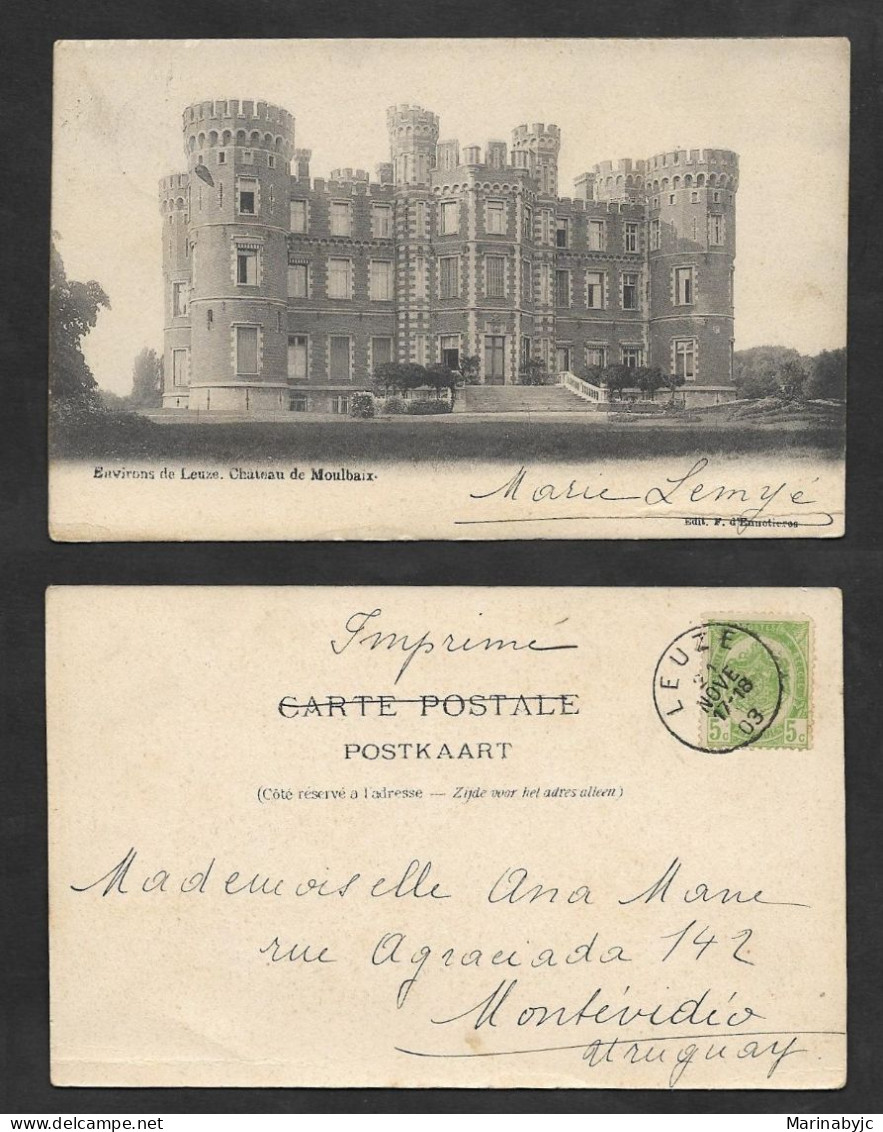 Environs de Leuze. Château de Moulbaix.
Marie Lemyé
Edit. F. d'Ennetieres
Imprimé
CARTE POSTALE
POSTKAART
(Côté réservé a l'adresse — Zijde voor het adres alleen)
LEUZE
NOVE
17-18
03
5c 5c
Mademoiselle Ana Mane
rue Agraciada 142
Montévidéo
Uruguay.
Marinabyjc